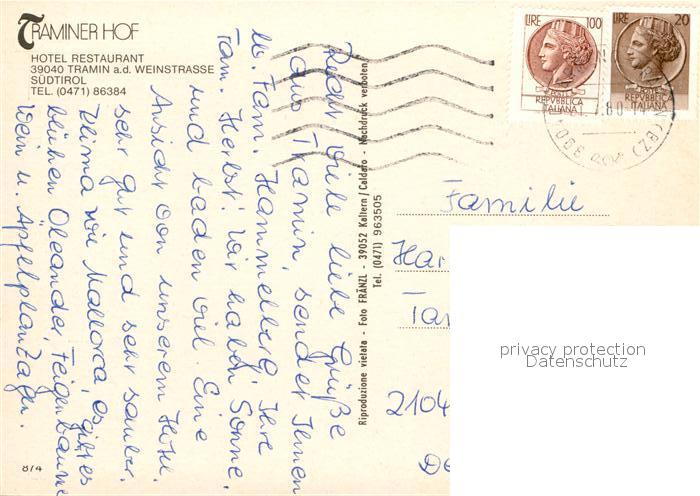 TRAMINER HOF
HOTEL RESTAURANT
39040 TRAMIN a.d. WEINSTRASSE
SÜDTIROL
TEL. (0471) 86384
Recht viele liebe Grüße
aus Tramin, sendet Ihnen
lb. Fam. Hammelberg, Ihre
Fam. Herbst. Wir haben Sonne,
und baden viel. Eine
Ansicht von unserem Hotel.
sehr gut und sehr sauber.
Klima wie Mallorca, es gibt
blühen Oleander, Feigenbäume
Wein u. Apfelplantagen.
8/4
Riproduzione vietata - Foto FRÄNZL - 39052 Kaltern / Caldaro - Nachdruck verboten
Tel. (0471) 963505
LIRE 100
REPVBBLICA
ITALIANA
LIRE 20
POSTE
REPVBBLICA
ITALIANA
(BZ)
Familie
Har
2104
privacy protection
Datenschutz